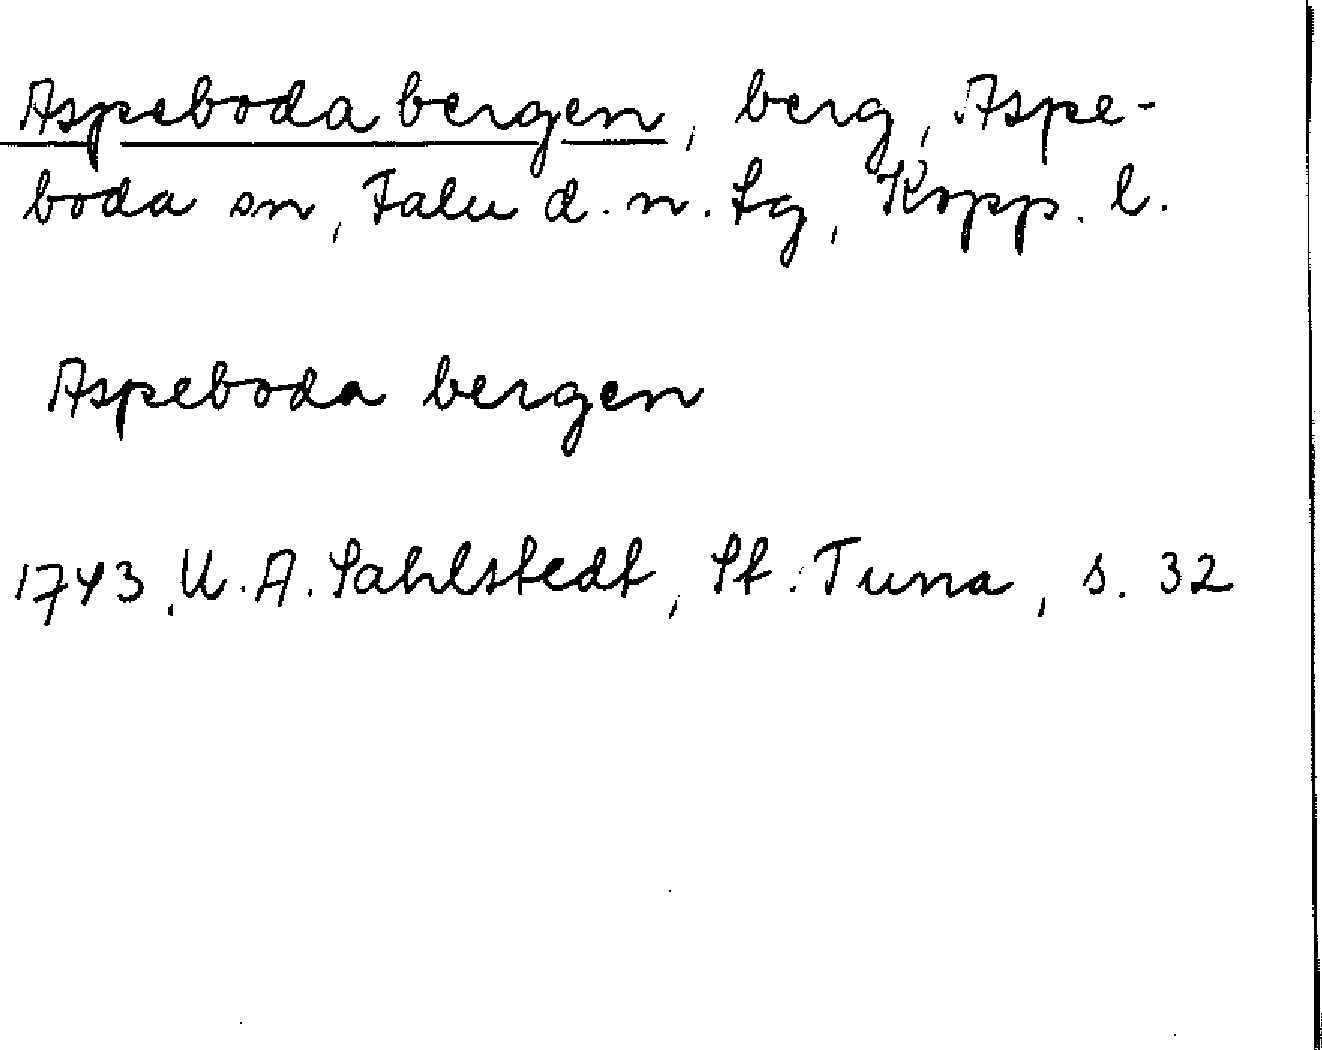 Aspeboda bergen, berg, Aspe-
boda sn, Falu d. n. tg, Kopp. l.
Aspeboda bergen
1743, U. A. Sahlstedt, St. Tuna, s. 32